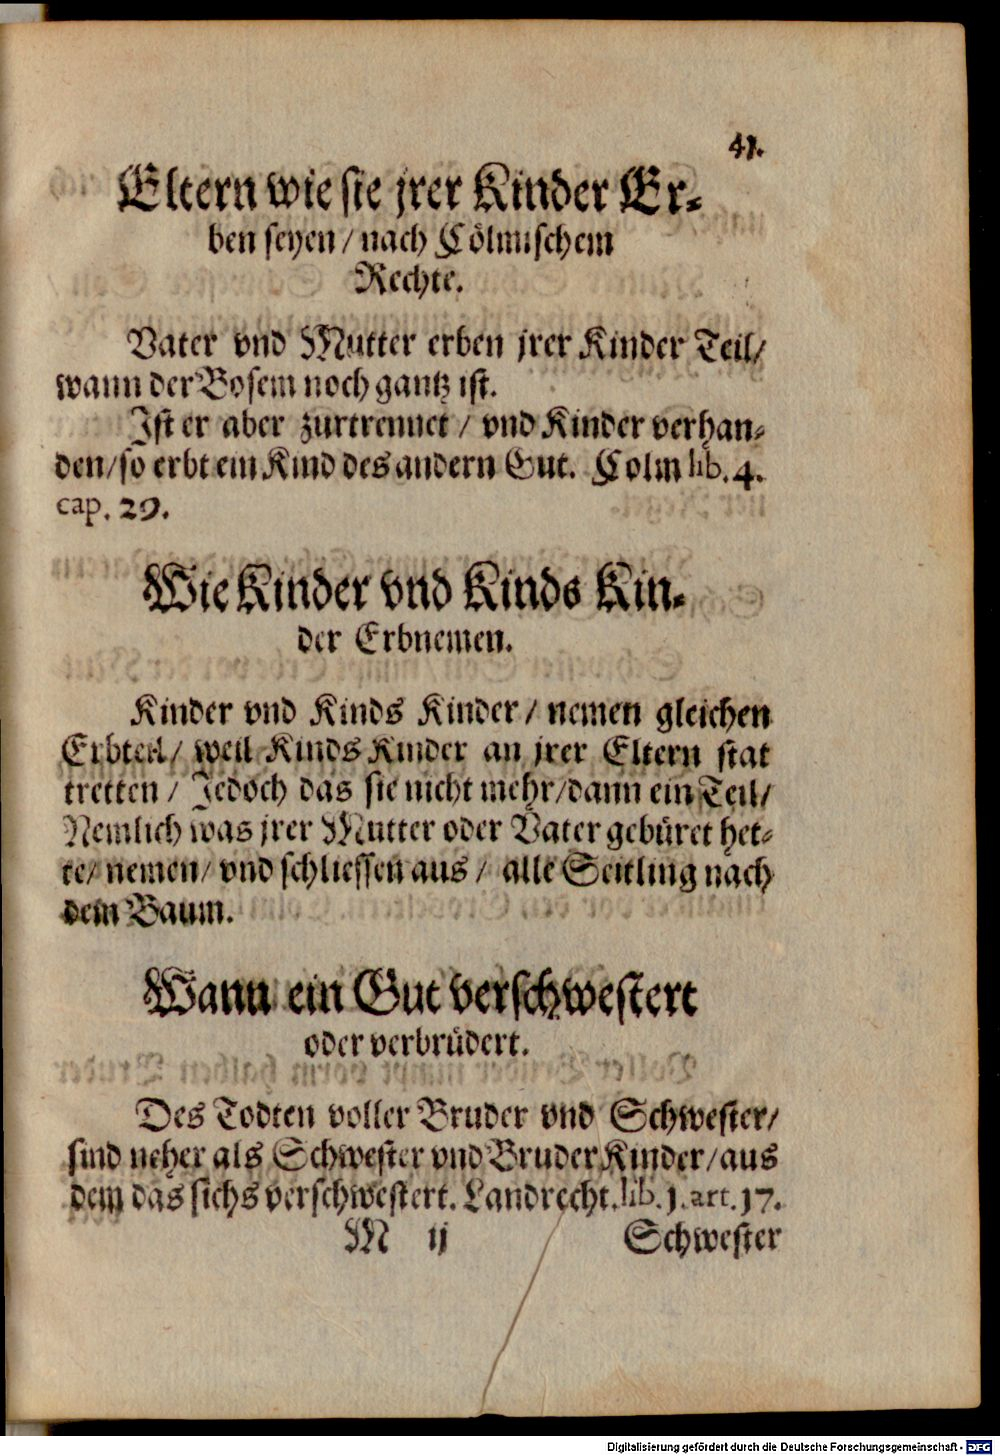 41.
Eltern wie sie jrer Kinder Er-
ben seyen / nach Cölmischem
Rechte.
Vater vnd Mutter erben jrer Kinder Teil /
wann der Bosem noch gantz ist.
Ist er aber zurtrennet / vnd Kinder verhan-
den / so erbt ein Kind des andern Gut. Colm lib. 4.
cap. 29.
Wie Kinder vnd Kinds Kin-
der Erbnemen.
Kinder vnd Kinds Kinder / nemen gleichen
Erbteil / weil Kinds Kinder an jrer Eltern stat
tretten / Jedoch das sie nicht mehr / dann ein Teil /
Nemlich was jrer Mutter oder Vater gebüret het-
te / nemen / vnd schliessen aus / alle Seitling nach
dem Baum.
Wann ein Gut verschwestert
oder verbrüdert.
Des Todten voller Bruder vnd Schwester /
sind neher als Schwester vnd Bruder Kinder / aus
dem das sichs verschwestert. Landrecht. lib. 1. art. 17.
M ij Schwester
Digitalisierung gefördert durch die Deutsche Forschungsgemeinschaft - DFG